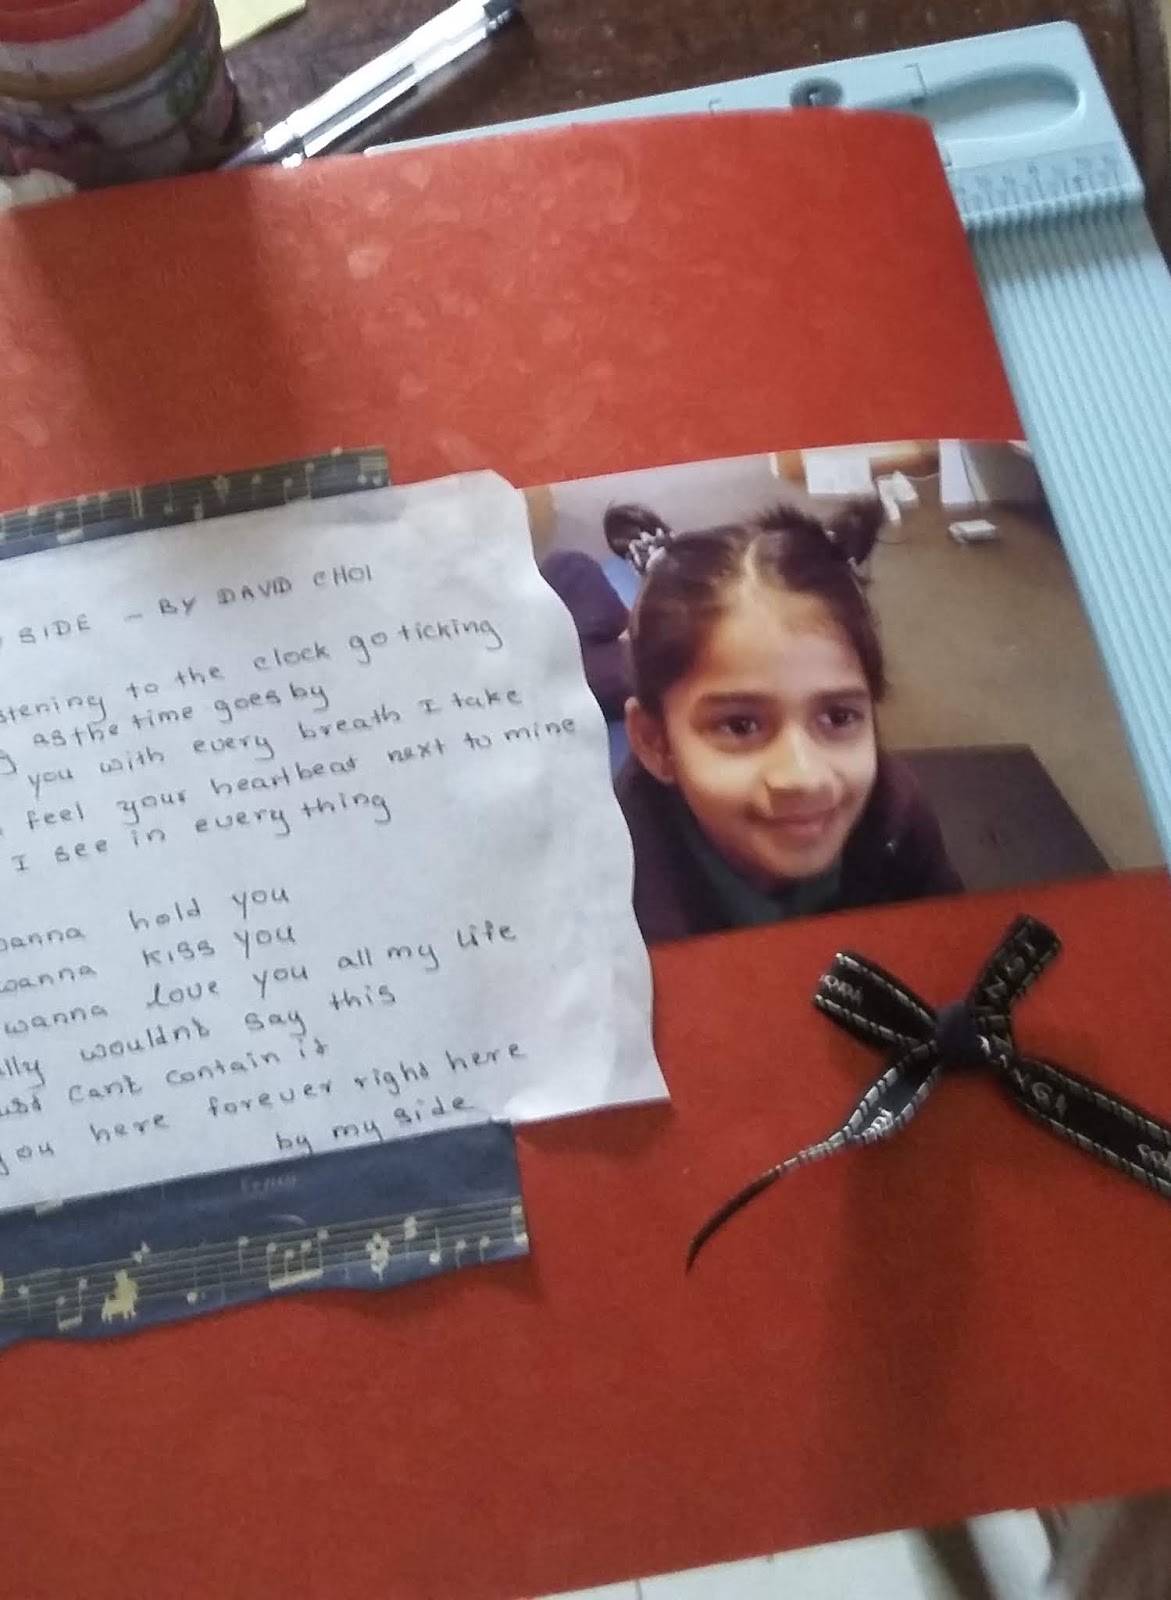 SIDE - BY DAVID CHOI
stening to the clock go ticking
g as the time goes by
you with every breath I take
feel your heartbeat next to mine
I see in every thing
anna hold you
wanna kiss you
wanna love you all my life
lly wouldnt say this
ust cant contain it
you here forever right here
by my side